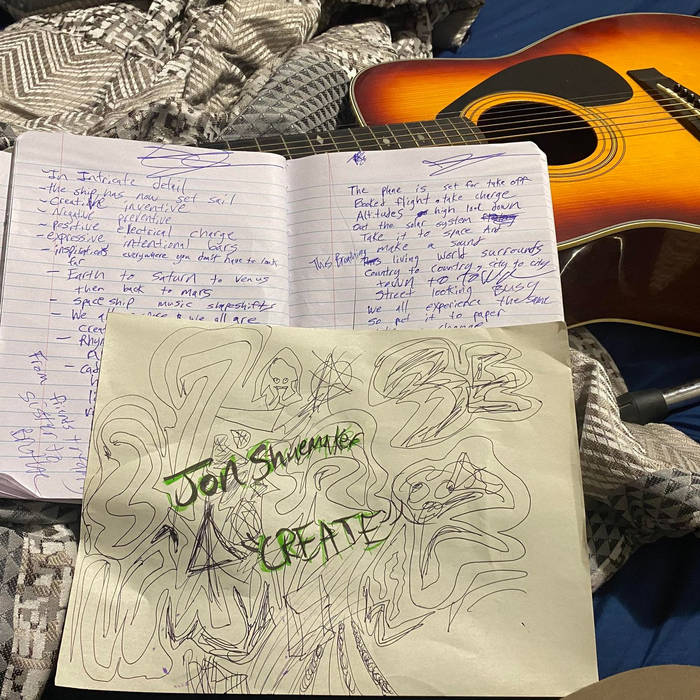 In Intricate detail
- the ship has now set sail
- Creative inventive
- Negative preventive
- positive electrical charge
- expressive intentional bars
- inspiration's everywhere you don't have to look
far
- Earth to Saturn to Venus
then back to mars
- space ship music shapeshifts
- we all & we all are
From friends to
sister to
Brother
The plane is set for take off
Booked flight take charge
Altitudes high look down
Out the solar system
Take it to space And
make a sound
This Breathing living world surrounds
Country to country, city to city
town to town
Street looking Busy
We all experience the same
so put it to paper
Jon Shuemaker
CREATE